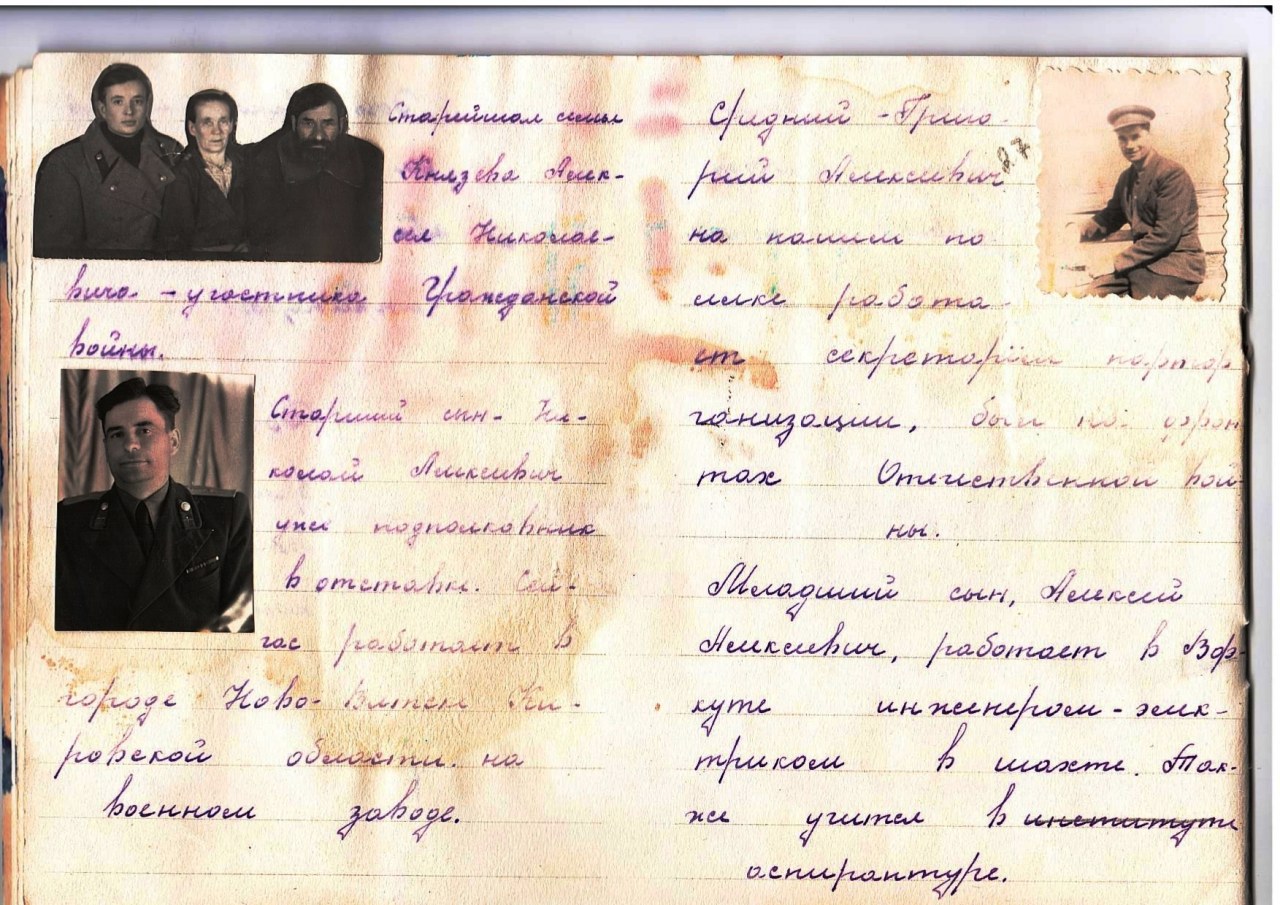 Старейшая семья
Князева Алек-
сея Николае-
вича - участника Гражданской
войны.
Старший сын - Ни-
колай Алексеевич
уже подполковник
в отставке. Сей-
час работает в
городе Ново-Вятске Ки-
ровской области на
военном заводе.
Средний - Григо-
рий Алексеевич
27
на нашем по
селке работа-
ет секретарём партор
ганизации, был на фрон
тах Отечественной вой-
ны.
Младший сын, Алексей
Алексеевич, работает в Вор-
куте инженером-элек-
триком в шахте. Так-
же учится в институте
аспирантуре.